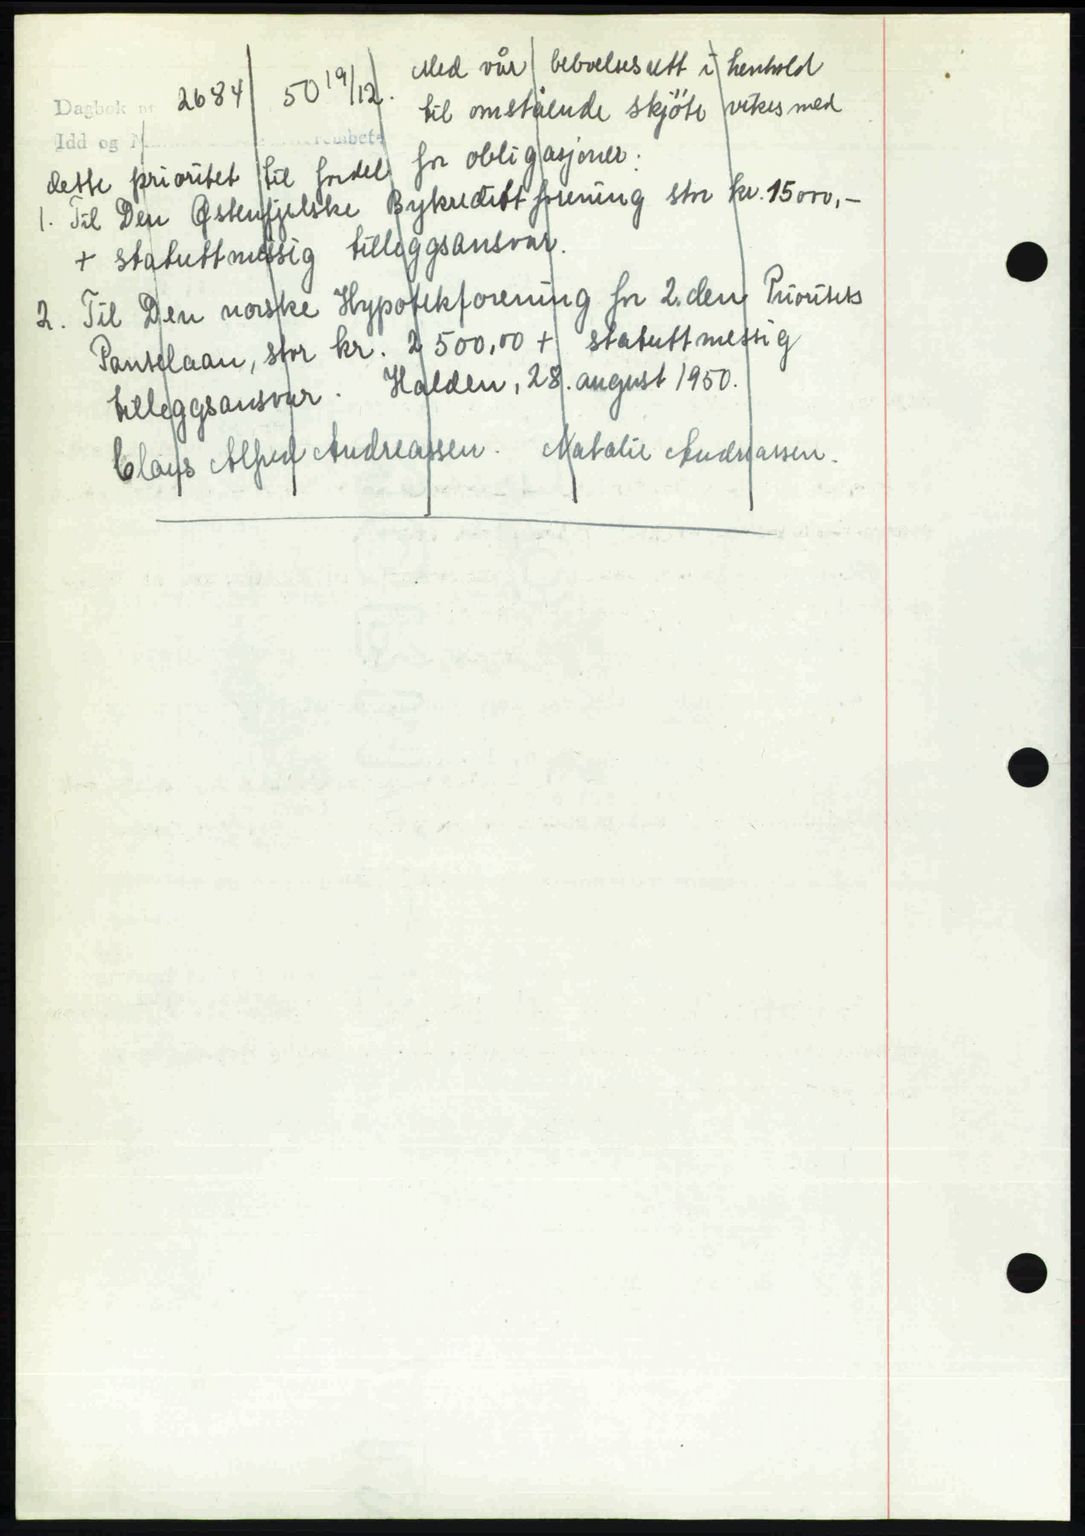 Dagbok nr. 2684 50 19/12. Med vår beboelsesrett i henhold
til omstående skjöte vikes med
Idd og
dette prioritet til fordel for obligasjoner:
1. Til Den Østenfjelske Bykredittforening stor kr. 15000,-
+ statuttmessig tilleggsansvar.
2. Til Den norske Hypotekforening for 2. den Prioritets
Pantelaan, stor kr. 2500,00 + statuttmessig
tilleggsansvar. Halden, 28. august 1950.
Claus Alfred Andreassen. Natalie Andreassen.